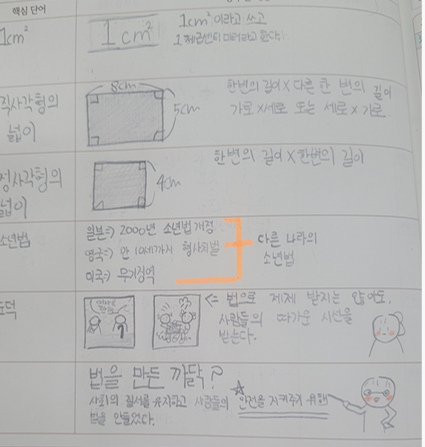 핵심 단어
1cm²
1cm²
1cm²이라고 쓰고
1제곱센티미터라고 한다.
직사각형의
넓이
8cm
5cm
한변의 길이 × 다른 한 변의 길이
가로×세로 또는 세로×가로
정사각형의
넓이
4cm
한변의 길이 × 한변의 길이
소년법
일본=> 2000년 소년법 개정
영국=> 만 10세까지 형사처벌
미국=> 무기징역
다른 나라의
소년법
도덕
<= 법으로 제재 받지는 않아도,
사람들의 따가운 시선을
받는다.
법을 만든 까닭?
사회의 질서를 유지하고 사람들의 안전을 지켜주기 위해
법을 만들었다.